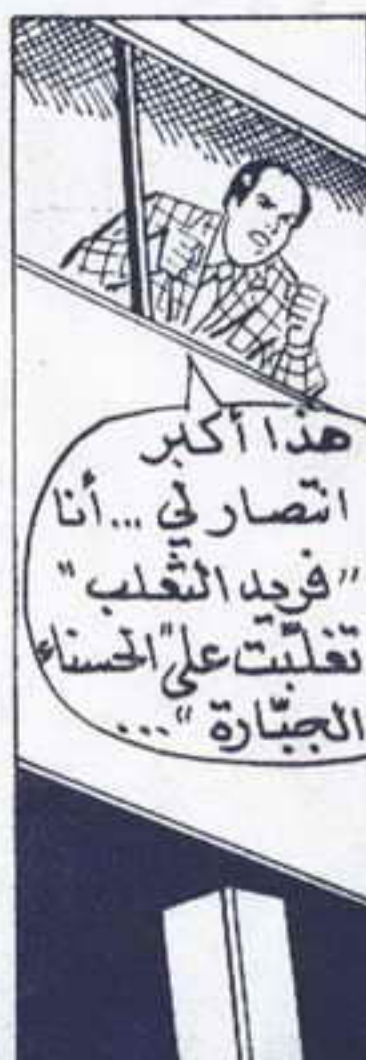 هذا أكبر
انتصار لي... أنا
"فريد الثعلب"
تغلّبت على "الحسناء
الجبّارة"...